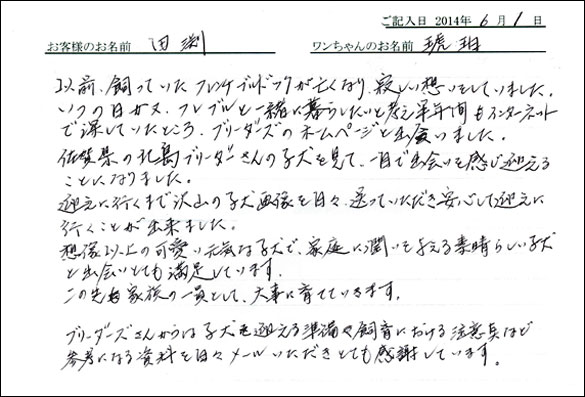 ご記入日 2014年 6月 1日
お客様のお名前 田渕 ワンちゃんのお名前 琥珀
以前、飼っていたフレンチブルドックが亡くなり、寂しい想いをしていました。
いつの日か又、フレブルと一緒に暮らしたいと考え半年間もインターネット
で探していたところ、ブリーダーズのホームページと出会いました。
佐賀県の北島ブリーダーさんの子犬を見て、一目で出会いを感じ迎える
ことになりました。
迎えに行くまで沢山の子犬画像を日々、送っていただき安心して迎えに
行くことが出来ました。
想像以上の可愛い元気な子犬で、家庭に潤いを与える素晴らしい子犬
と出会いとても満足しています。
この先も家族の一員として、大事に育てていきます。
ブリーダーズさんからは子犬を迎える準備や飼育における注意点など
参考になる資料を日々メールいただきとても感謝しています。